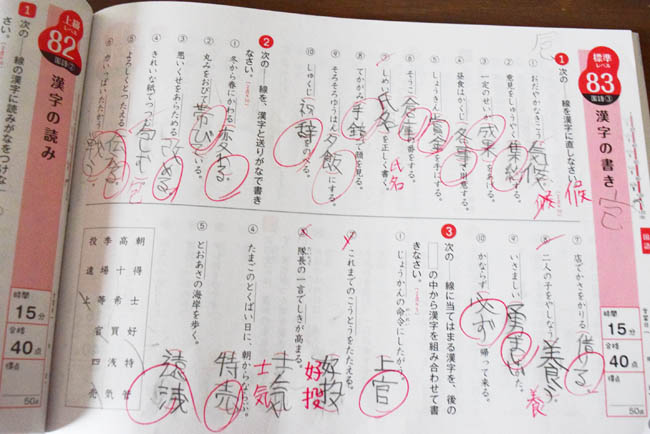 標準レベル
83
国語③
漢字の書き
時間
15分
合格
40点
得点
50点
1 次の――線を漢字に直しなさい。
① おだやかなきこう 気候
候
② 意見をしゅうやく
③ 一定のせいか 成果 をあげる。
④ 昼食はかくじ 用意する。
⑤ しょうきん 賞金 を手にする。
⑥ そうこ 倉庫 の番をする。
⑦ しめい 氏名 を正しく書く。
氏名
⑧ てかがみ 手鏡 で顔を見る。
⑨ そろそろゆうはん 夕飯 にする。
⑩ しゅくじ 祝辞 をのべる。
2 次の――線を、漢字と送りがなで書きなさい。
① 冬から春にかける
② 丸みをおびて 帯びて いる。
③ 悪いくせをあらためる 改める
④ きれいな紙でつつむ 包む
⑤ よろしくとつたえる 伝える
⑦ 店でかさをかりる 借りる
⑧ 二人の子をやしなう 養う
養
⑨ いさましい
⑩ かならず 必ず 帰って来る。
3 次の――線に当てはまる漢字を、後の□の中から漢字を組み合わせて書きなさい。
① じょうかんの命令にしたがう 上官
② これまでのこうとうをたたえる。 好投
好投
③ 隊長の一言でしきが高まる。 士気
士気
④ たまごのとくばい日に、朝からならぶ。 特売
⑤ とおあさの海岸を歩く。 遠浅
投季高朝
遠場十得
上等希士
官買好
上級レベル
82
国語②
漢字の読み
時間
15分
合格
40点
得点
50点
1 次の――線の漢字に読みがなをつけな
さい。